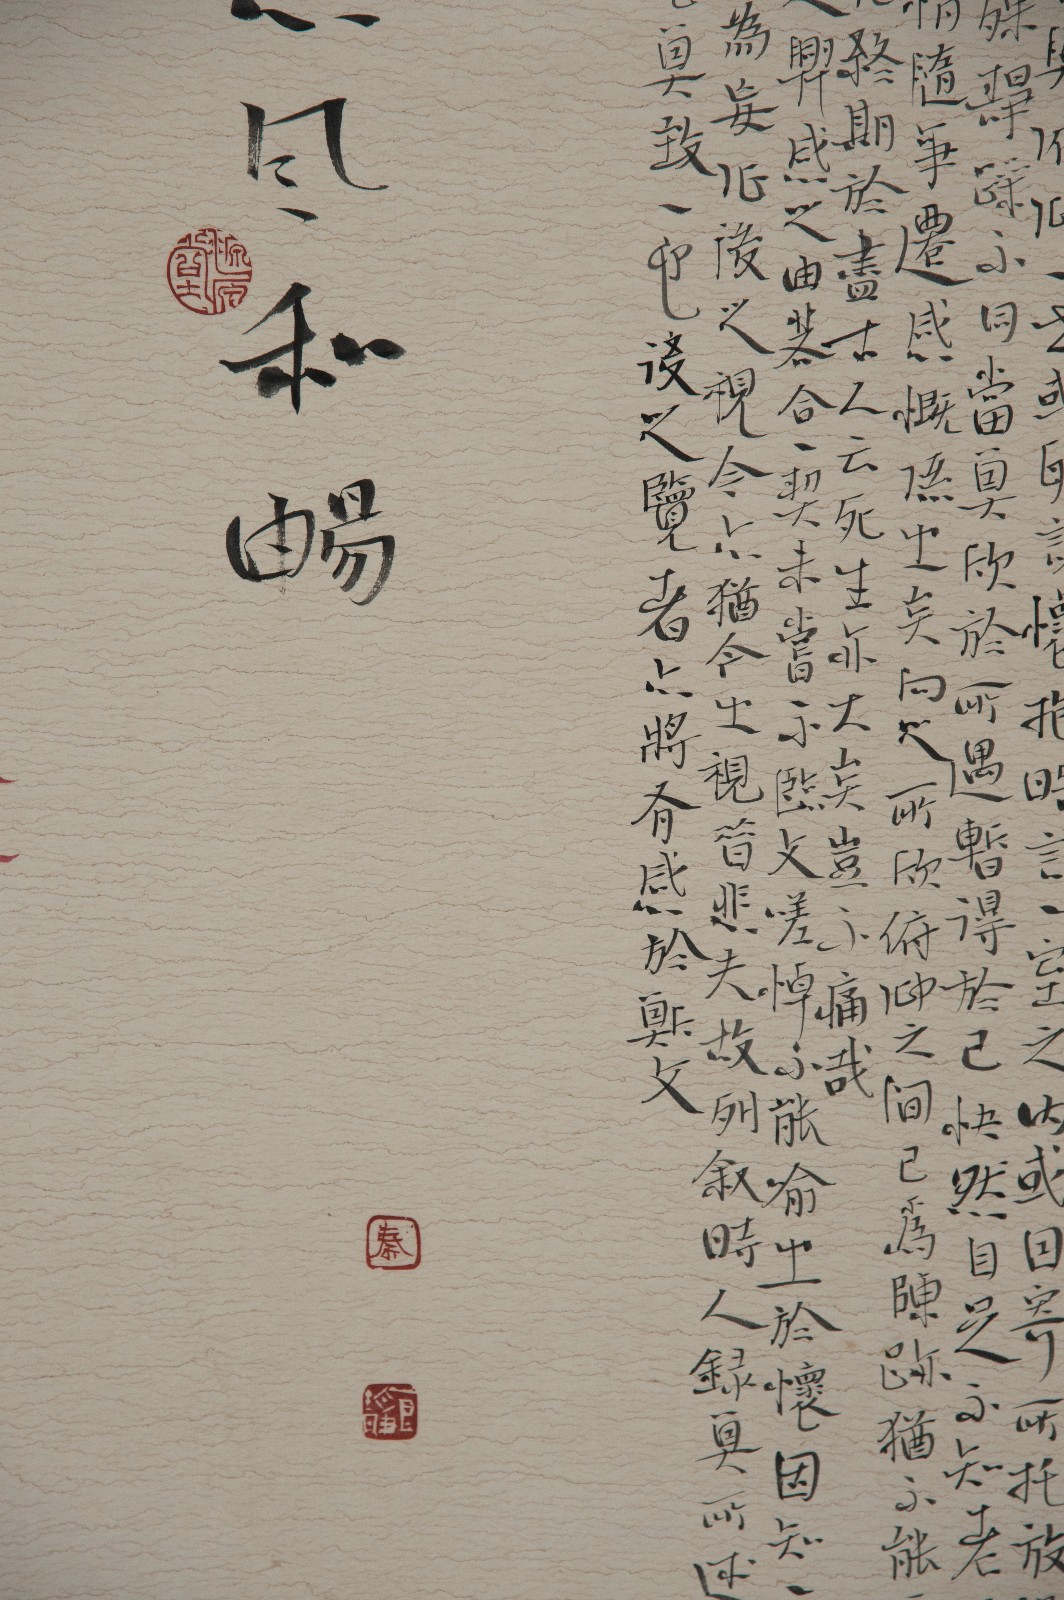 與俯仰一世或取諸懷抱晤言一室之內或因寄所托放
殊靜躁不同當其欣於所遇暫得於己快然自足不知老
情隨事遷感慨係之矣向之所欣俯仰之間已為陳跡猶不能
化終期於盡古人云死生亦大矣豈不痛哉
之興感之由若合一契未嘗不臨文嗟悼不能喻之於懷因知一
為妄作後之視今亦猶今之視昔悲夫故列敘時人錄其所述
其致一也後之覽者亦將有感於斯文
風和暢
秦